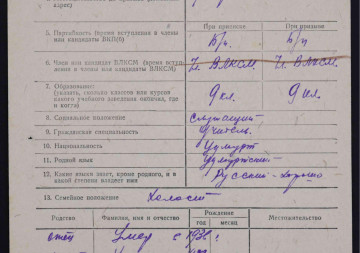 адрес)
При призыве
При призыве
5. Партийность (время вступления в члены
или кандидаты ВКП(б)
б/п.
б/п
6. Член или кандидат ВЛКСМ (время всту-
пления в члены или кандидаты ВЛКСМ)
Чл. ВЛКСМ
Чл. ВЛКСМ.
7. Образование:
(указать, сколько классов или курсов
какого учебного заведения окончил, где
и когда)
9 кл.
9 кл.
8. Социальное положение
служащий
9. Гражданская специальность
Учитель.
10. Национальность
Удмурт
11. Родной язык
Удмуртский
12. Какие языки знает, кроме родного, и в
какой степени владеет ими
Русский - хорошо
13. Семейное положение
Холост
Родство
Фамилия, имя и отчество
Рождение
год
месяц
Местожительство
отец
Умер с 1938 г.